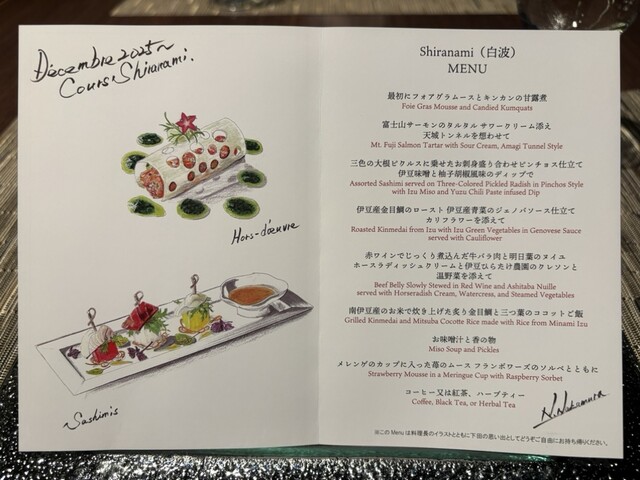 Décembre 2025~
Cours Shiranami.
Hors-d'œuvre
~Sashimis
Shiranami（白波）
MENU
最初にフォアグラムースとキンカンの甘露煮
Foie Gras Mousse and Candied Kumquats
富士山サーモンのタルタル サワークリーム添え
天城トンネルを想わせて
Mt. Fuji Salmon Tartar with Sour Cream, Amagi Tunnel Style
三色の大根ピクルスに乗せたお刺身盛り合わせピンチョス仕立て
伊豆味噌と柚子胡椒風味のディップで
Assorted Sashimi served on Three-Colored Pickled Radish in Pinchos Style
with Izu Miso and Yuzu Chili Paste infused Dip
伊豆産金目鯛のロースト 伊豆産青菜のジェノバソース仕立て
カリフラワーを添えて
Roasted Kinmedai from Izu with Izu Green Vegetables in Genovese Sauce
served with Cauliflower
赤ワインでじっくり煮込んだ牛バラ肉と明日葉のヌイユ
ホースラディッシュクリームと伊豆ひらたけ農園のクレソンと
温野菜を添えて
Beef Belly Slowly Stewed in Red Wine and Ashitaba Nuille
served with Horseradish Cream, Watercress, and Steamed Vegetables
南伊豆産のお米で炊き上げた炙り金目鯛と三つ葉のココットご飯
Grilled Kinmedai and Mitsuba Cocotte Rice made with Rice from Minami Izu
お味噌汁と香の物
Miso Soup and Pickles
メレンゲのカップに入った苺のムース フランボワーズのソルベとともに
Strawberry Mousse in a Meringue Cup with Raspberry Sorbet
コーヒー又は紅茶、ハーブティー
Coffee, Black Tea, or Herbal Tea
※この Menu は料理長のイラストとともに下田の思い出としてどうぞご自由にお持ち帰りください。